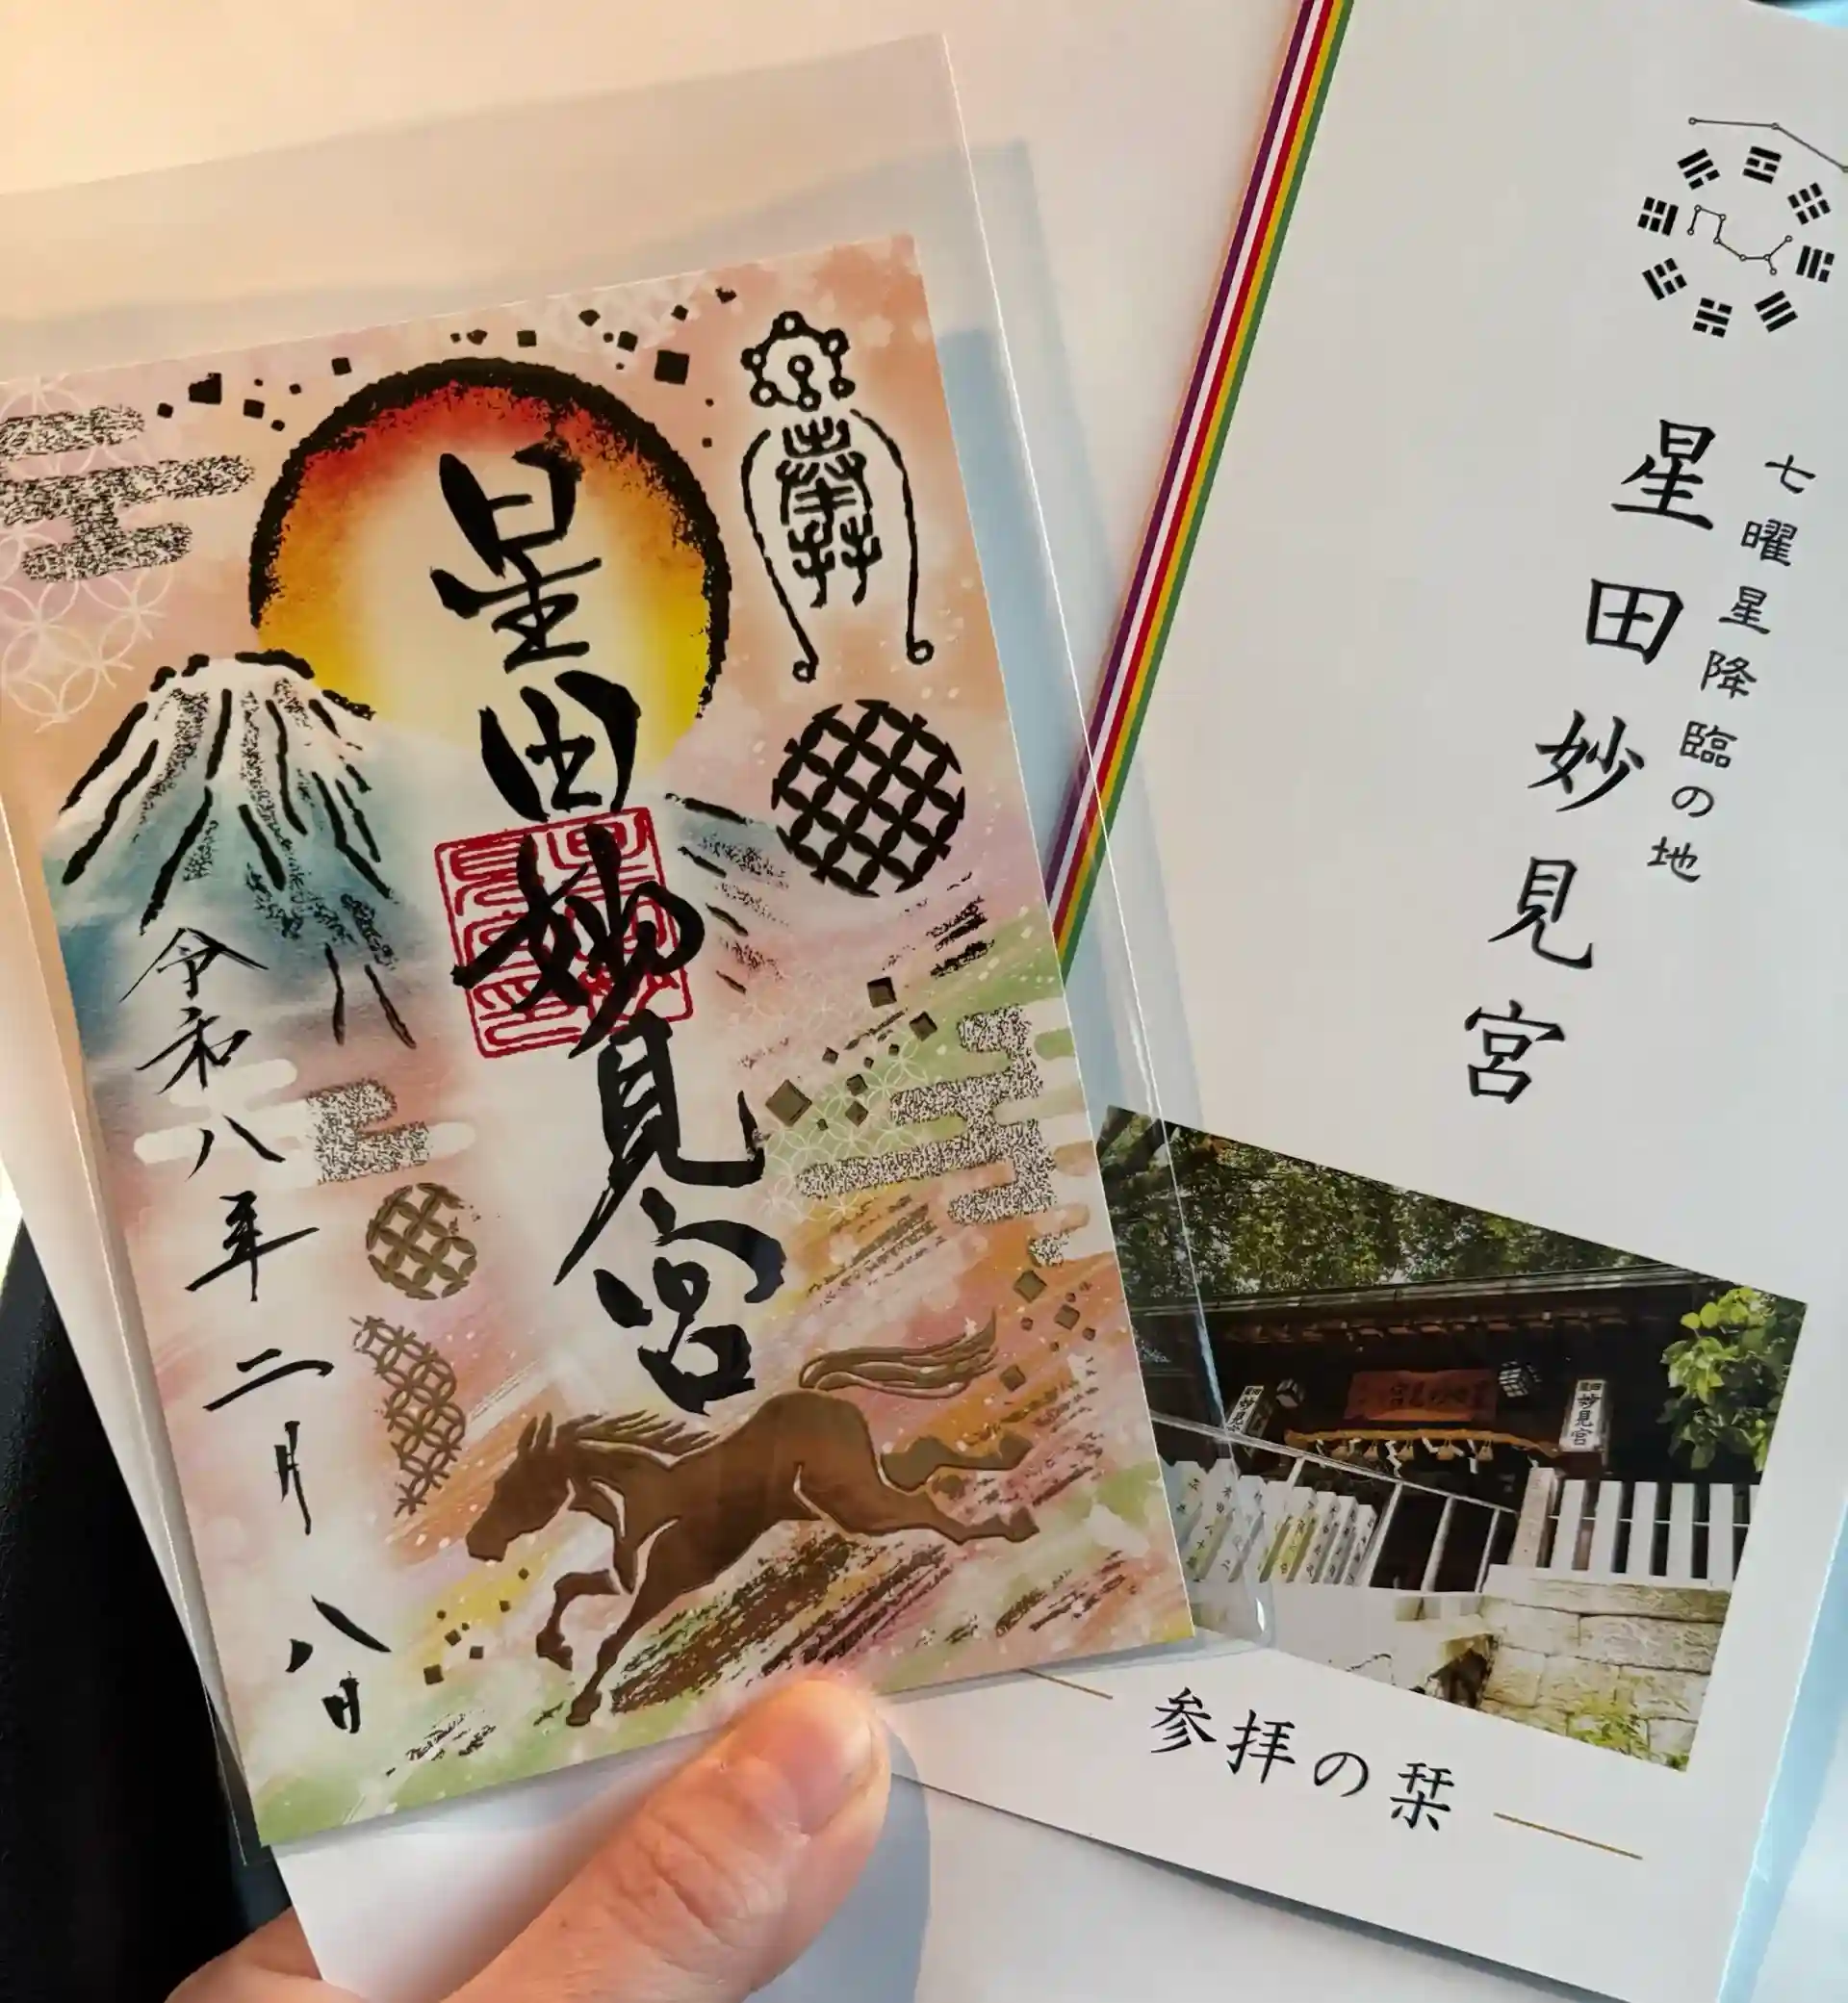 星田妙見宮
令和八年二月八日
七曜星降臨の地
星田妙見宮
妙見宮
参拝の栞